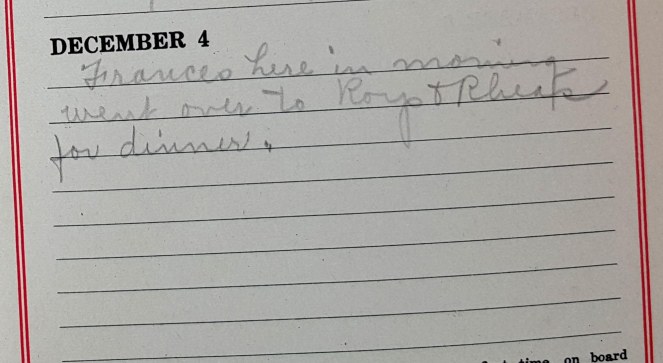 DECEMBER 4
Frances here in morning
went over to Roy + Rheas
for dinner.
time on board